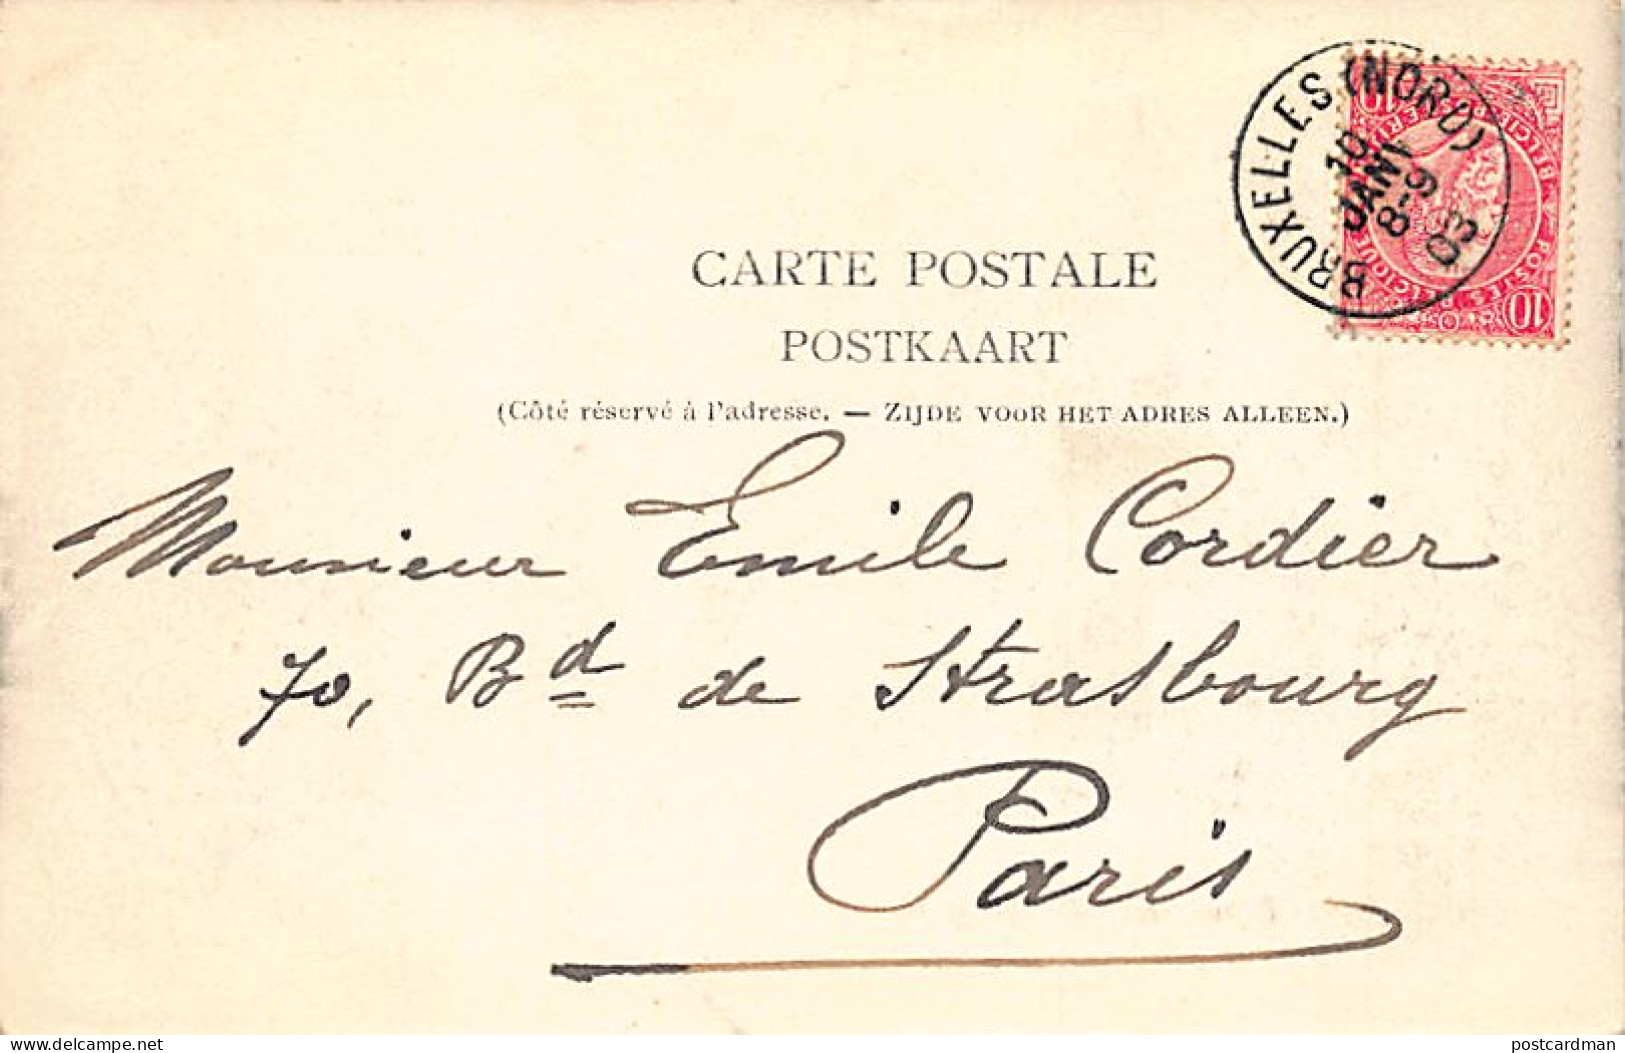 BRUXELLES (NORD)
10
JANV
8-9
03
10
10
CARTE POSTALE
POSTKAART
(Côté réservé à l'adresse. — ZIJDE VOOR HET ADRES ALLEEN.)
Monsieur Emile Cordier
70, Bd de Strasbourg
Paris
delcampe.net
postcardman